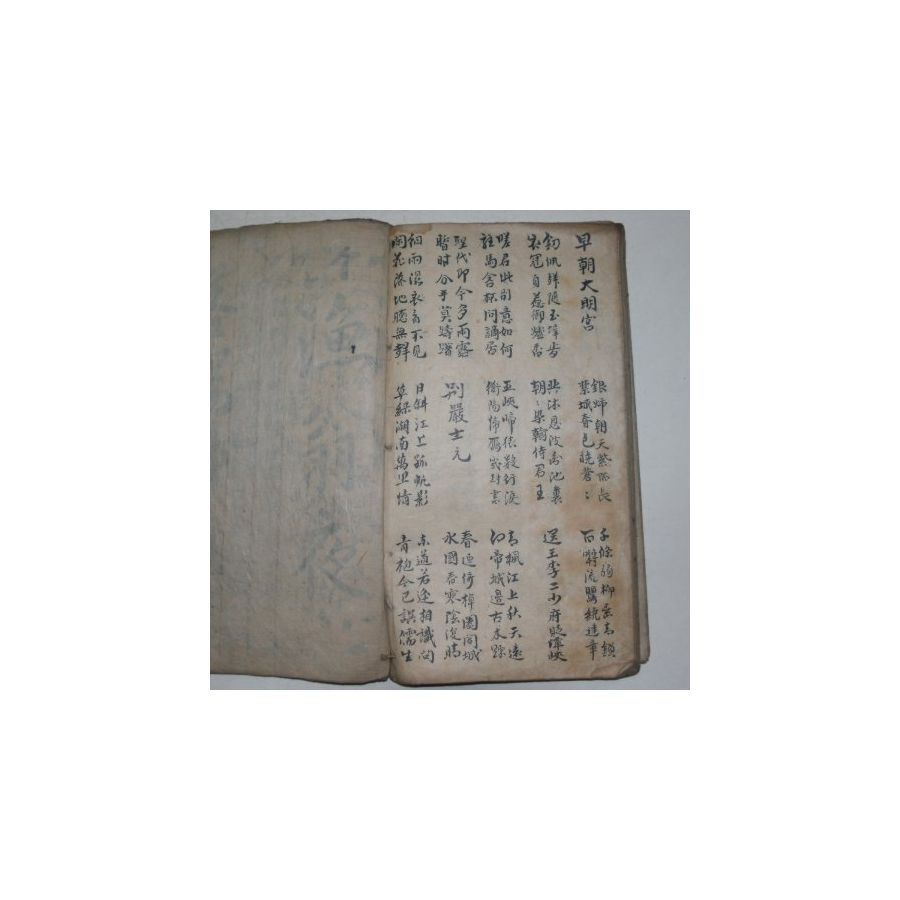 早朝大明宮
銀燭朝天紫陌長
禁城春色曉蒼〻
千條弱柳垂青鎖
百囀流鶯繞建章
劍佩聲隨玉墀步
衣冠身惹御爐香
共沐恩波鳳池裏
朝〻染翰侍君王
送王李二少府貶潭峽
嗟君此別意如何
駐馬含杯問謫居
巫峽啼猿數行淚
衡陽歸雁幾封書
青楓江上秋天遠
白帝城邊古木疎
聖代即今多雨露
暫時分手莫躊躇
別嚴士元
春風倚棹闔閭城
水國春寒陰復晴
細雨濕衣看不見
閑花落地聽無聲
日斜江上孤帆影
草綠湖南萬里情
東道若逢相識問
青袍今已誤儒生